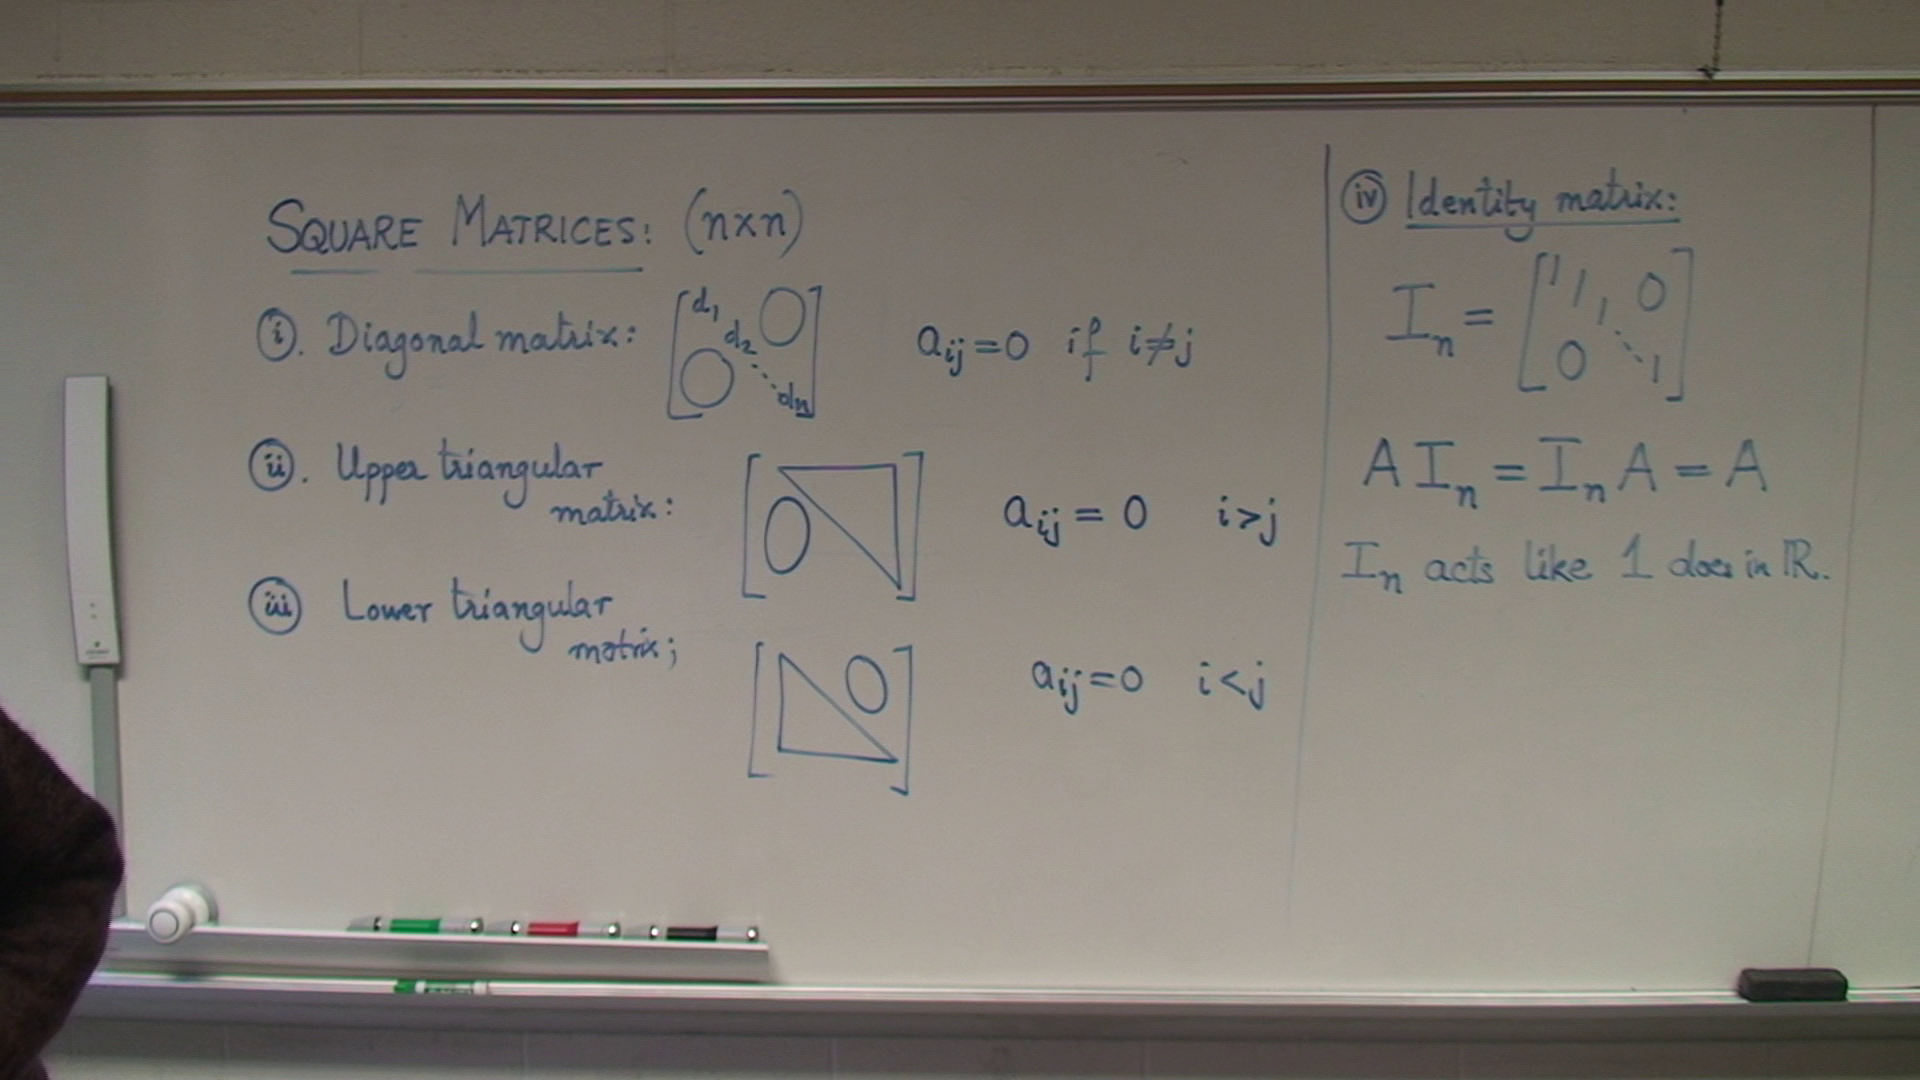 SQUARE MATRICES: (n×n)
i. Diagonal matrix: [d₁ d₂ dn 0 0] aᵢⱼ=0 if i≠j
ii. Upper triangular
matrix: [0] aᵢⱼ = 0 i>j
iii Lower triangular
matrix; [0] aᵢⱼ=0 i<j
iv Identity matrix:
Iₙ = [1 1 1 0 0 1]
A Iₙ = Iₙ A = A
Iₙ acts like 1 does in ℝ.